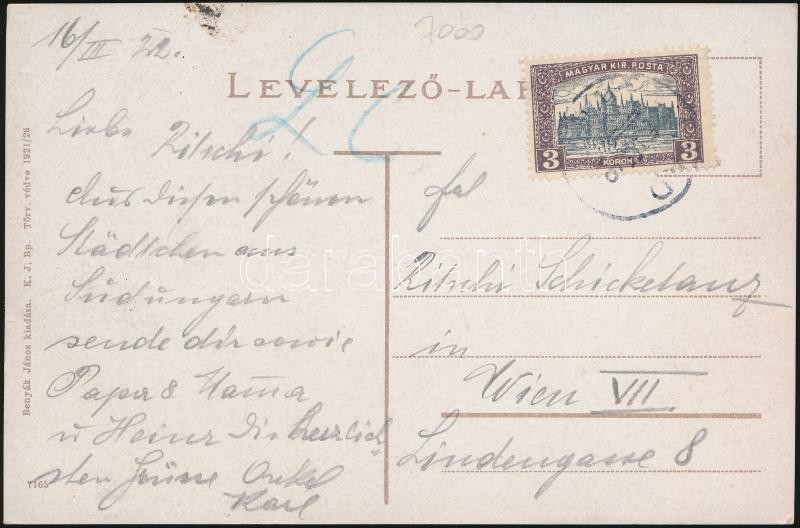 16/III 22.
7000
LEVELEZŐ-LAP
MAGYAR KIR. POSTA
3 KORONA 3
Liebe Ritschi!
Aus diesen schönen
Städtchen aus
Südungarn
sende dir sowie
Papa & Mama
u Heinz die herzlich-
sten Grüsse Onkel
Karl
Frl
Ritschi Schickelanz
in
Wien VII
Lindengasse 8
Benyák János kiadása. K. J. Bp. Törv. védve 1921/26
7165
darabanth